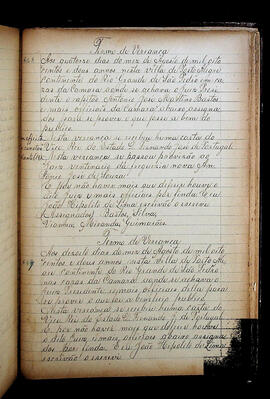 Termo de Veriança
Aos quatorze dias do mez de Agosto de mil oito
centos e dous annos nesta villa de Porto Alegre
Continente do Rio Grande de São Pedro em ca-
zas da Camara aonde se achava o Juiz Presi-
dente o capitão Antonio José Martins Bastos
e mais officiaes da Camara abaixo assigna-
dos para se prover o que fosse a bem do
publico.
Nesta veriança se recebeu huma carta do
Vice Rei do Estado D. Fernando José de Portugal
Nesta veriança se passou provisão ao
Juiz ventenario da freguezia nova An-
tonio José de Souza
E por não haver mais que deferir houve o
dito Juiz e mais officiaes por finda. Eu
João Hipolito de Lima escrivão o escrevi
Assignados Bastos, Silva,
Vianna, Miranda, Guimarães
Termo de Veriança
Aos dezoito dias do mez de Agosto de mil oito
centos e dous annos, nesta Villa de Porto Ale-
gre continente do Rio Grande de São Pedro
nas cazas da Camara aonde se achava o
Juiz Presidente e mais officiaes della para
se prover o que fosse a beneficio publico
Nesta veriança se recebeu huma carta do
Vice Rei do Estado D. Fernando J. de Portugal
E por não haver mais que deferir houve
o dito Juiz e mais officiaes abaixo assigna-
dos por finda. Eu João Hipolito de Lima
escrivão o escrevi